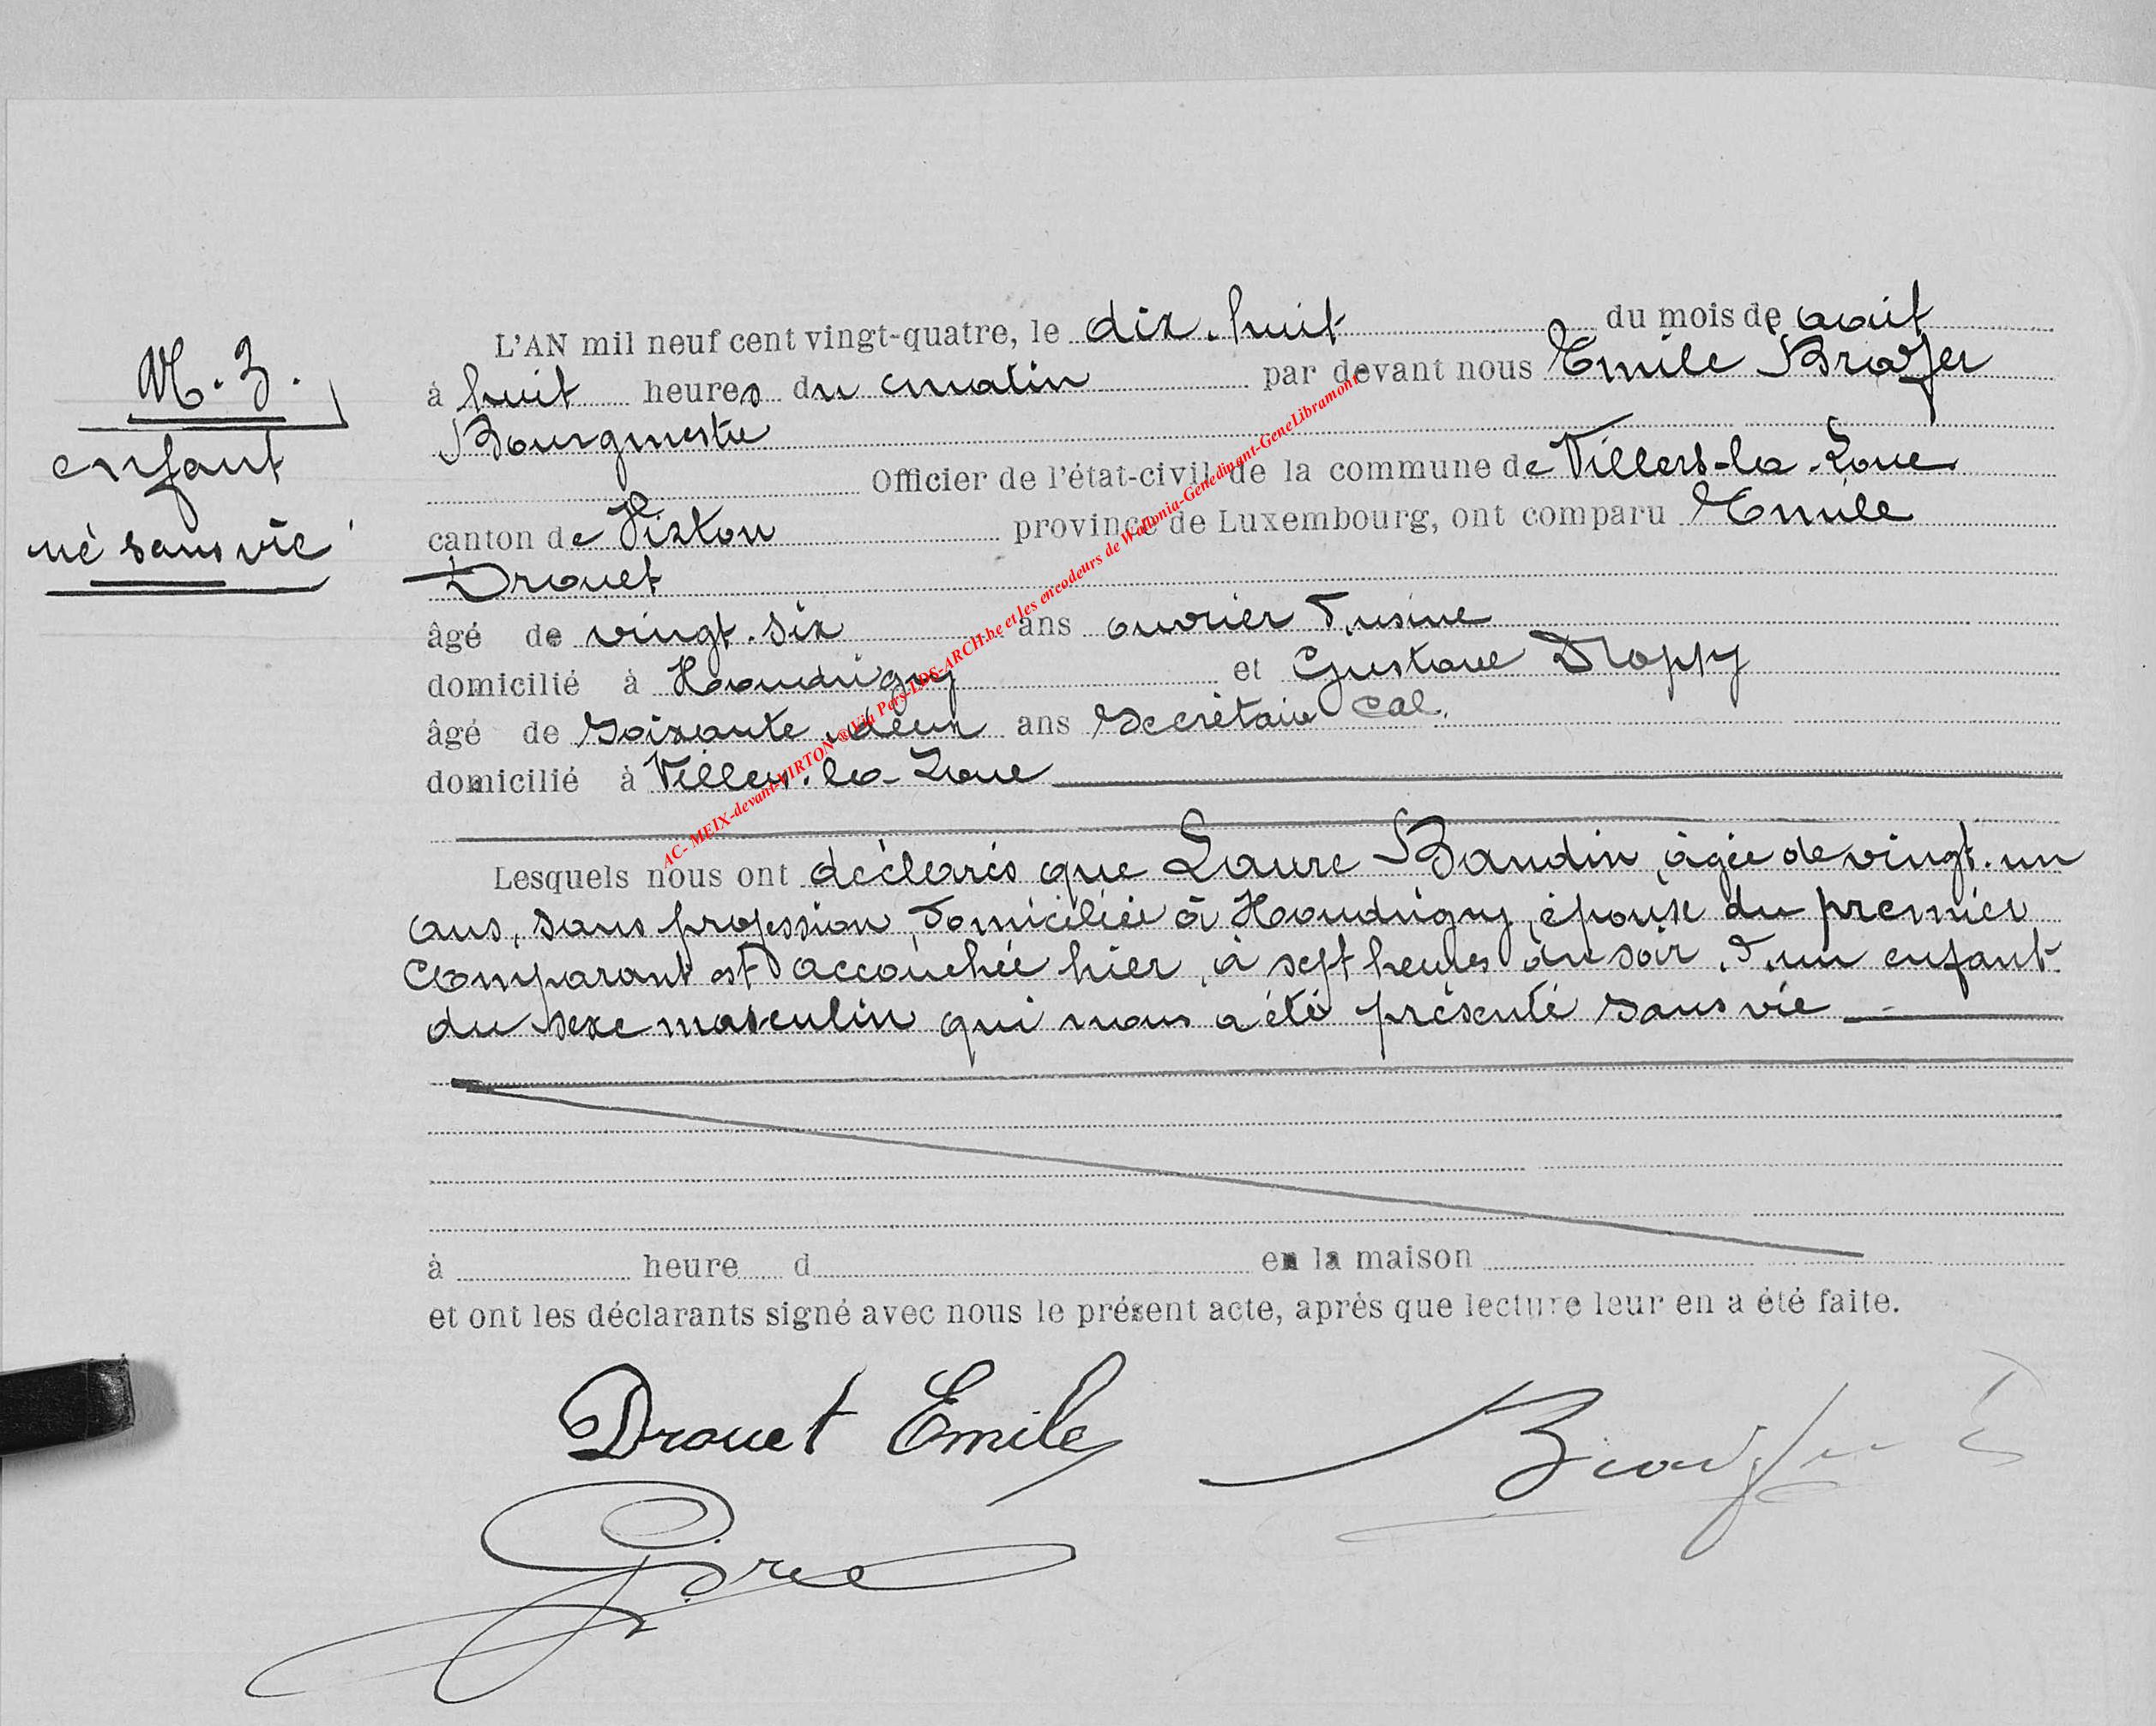 N. 3.
enfant
né sans vie
L'AN mil neuf cent vingt-quatre, le dix-huit du mois de août
à huit heures du matin par devant nous Emile
Bourgmestre
Officier de l'état-civil de la commune de Villers-la-Loue
canton de Virton province de Luxembourg, ont comparu Emile
Drouet
âgé de vingt-six ans ouvrier d'usine
domicilié à Houdrigny et Gustave
âgé de soixante-deux ans secrétaire cal.
domicilié à Villers-la-Loue
Lesquels nous ont déclarés que Laure Baudin, âgée de vingt-un
ans, sans profession, domiciliée à Houdrigny, épouse du premier
comparant est accouchée hier, à sept heures du soir, d'un enfant
du sexe masculin qui nous a été présenté sans vie
à heure d en la maison
et ont les déclarants signé avec nous le présent acte, après que lecture leur en a été faite.
Drouet Emile
AC- MEIX-devant-VIRTON ® Via Pers-LDS-ARCH.be et les encodeurs de Wallonia-Genedinant-GeneLibramont